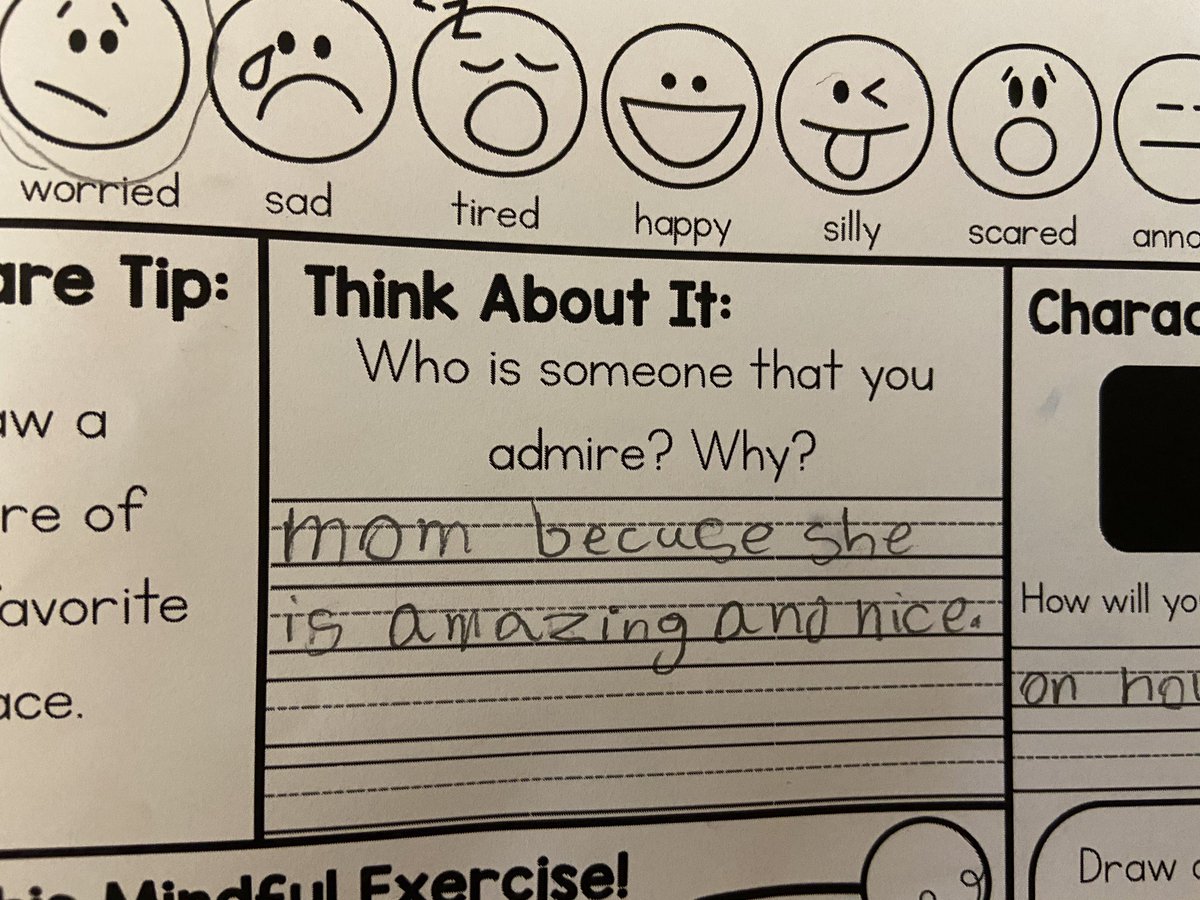 z
worried sad tired happy silly scared anno
are Tip:
aw a
re of
avorite
ace.
Think About It:
Who is someone that you
admire? Why?
mom becuse she
is amazing and nice.
Charac
How will yo
on
his Mindful Exercise!
Draw